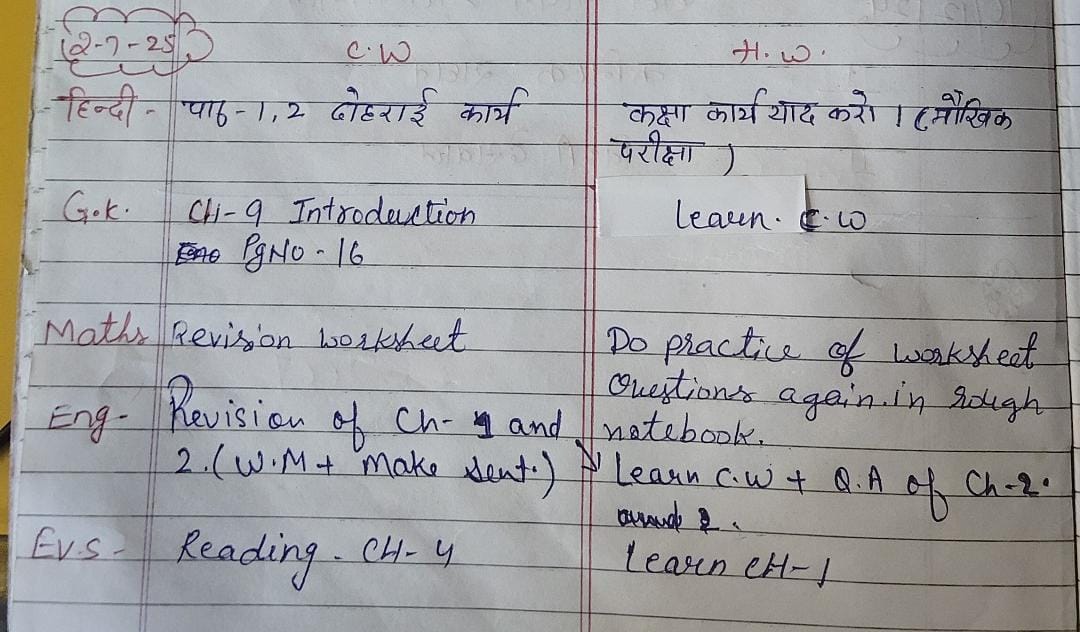 2-7-25 C.W H.W.
हिन्दी - पाठ-1,2 दोहराई कार्य कक्षा कार्य याद करो । (मौखिक
परीक्षा )
G.K. CH-9 Introduction Learn. C.W
Pg No - 16
Maths Revision worksheet Do practice of worksheet
Questions again in rough
Eng - Revision of Ch-1 and notebook.
2. (W.M + Make sent.) Learn C.W + Q.A of Ch-2.
E.V.S - Reading - CH-4 Learn CH-1